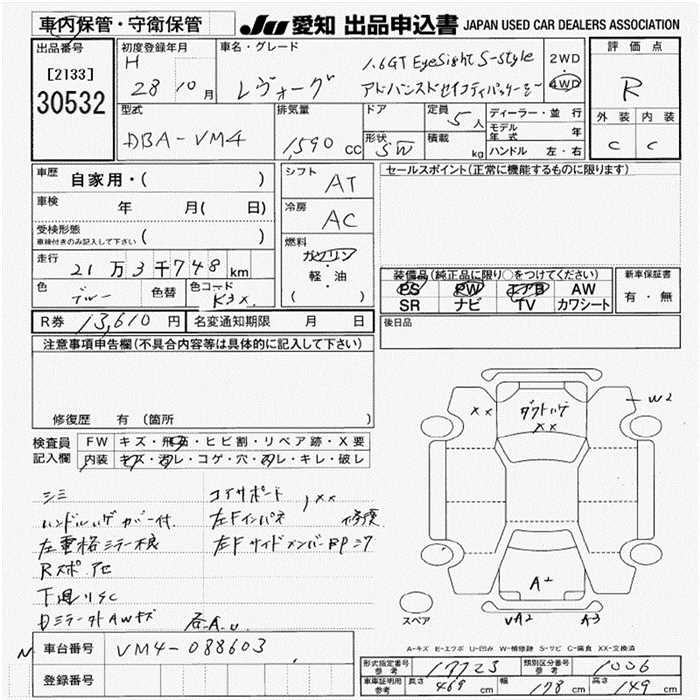 車内保管・守衛保管
JU 愛知 出品申込書 JAPAN USED CAR DEALERS ASSOCIATION
出品番号
[2133]
30532
初度登録年月
H 28 10月
車名・グレード
レヴォーグ
1.6GT EyeSight S-style
2WD
4WD
評価点
R
外装 内装
C C
型式
DBA-VM4
排気量
1,590 cc
ドア
形状
SW
定員
5人
積載
kg
ディーラー・並行
モデル年式 年
ハンドル 左・右
車歴
自家用・( )
車検
年 月( 日)
受検形態
車検付きのみ記入して下さい ( )
走行
21万3千748km
色
ブルー
色替
色コード
K3X
シフト
AT
冷房
AC
燃料
ガソリン
軽・油
( )
セールスポイント(正常に機能するものに限ります)
装備品(純正品に限り○をつけてください)
PS PW エアB AW
SR ナビ TV カワシート
新車保証書
有・無
後日品
R券 13,610円
名変通知期限 月 日
注意事項申告欄(不具合内容等は具体的に記入して下さい)
修復歴 有 (箇所 )
検査員記入欄
FW キズ・飛石・ヒビ割・リペア跡・X要
内装 キズ・汚レ・コゲ・穴・スレ・キレ・破レ
シミ
コアサポート
XX
左Fインパネ
修復
Rスポ
下廻りサビ
車台番号
VM4-088603
登録番号
XX
XX
W2
A
A2
A3
スペア
A-キズ E-エクボ U-凹み W-補修跡 S-サビ C-腐食 XX-交換済
形式指定番号 参考
17723
類別区分番号 参考
1006
車庫証明用 参考
長さ 469 cm
幅 178 cm
高さ 149 cm